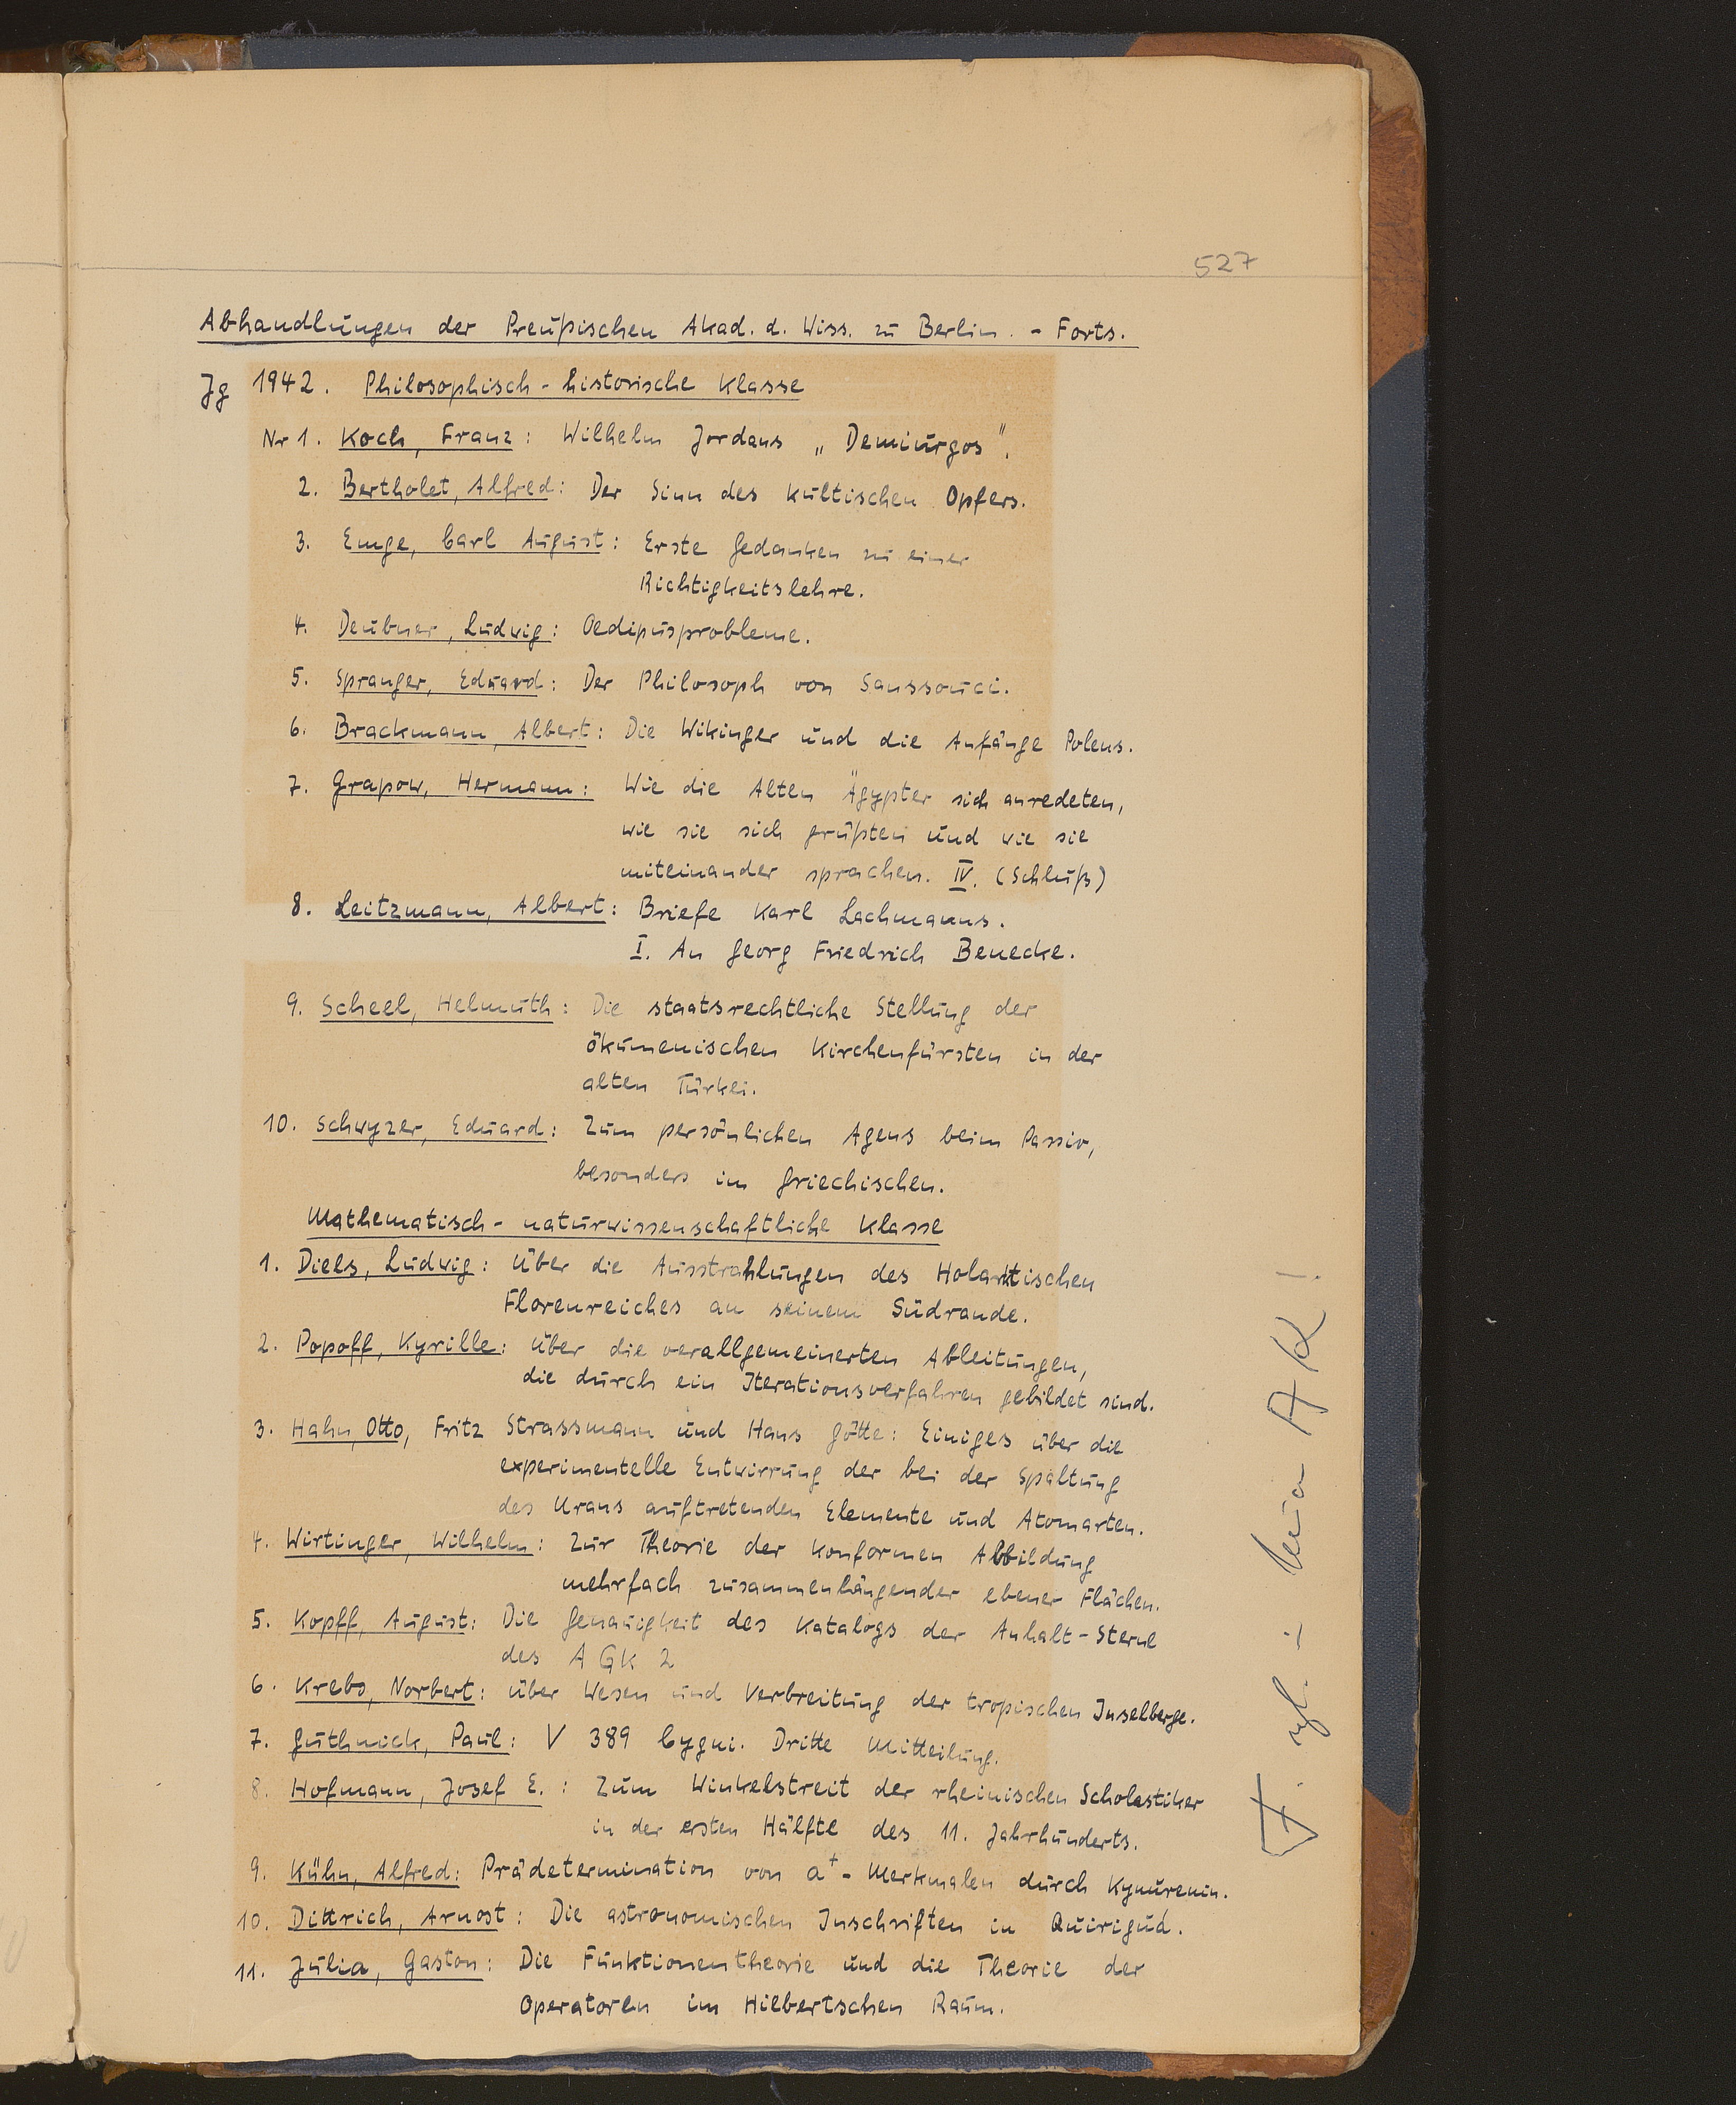 527
Abhandlungen der Preußischen Akad. d. Wiss. zu Berlin. - Forts.
Jg 1942. Philosophisch-historische Klasse
Nr 1. Koch, Franz: Wilhelm Jordans „Demiurgos".
2. Bertholet, Alfred: Der Sinn des kultischen Opfers.
3. Emge, Carl August: Erste Gedanken zu einer
Richtigkeitslehre.
4. Deubner, Ludwig: Oedipusprobleme.
5. Spranger, Eduard: Der Philosoph von Sanssouci.
6. Brackmann, Albert: Die Wikinger und die Anfänge Polens.
7. Grapow, Hermann: Wie die Alten Ägypter sich anredeten,
wie sie sich grüßten und wie sie
miteinander sprachen. IV. (Schluß)
8. Leitzmann, Albert: Briefe Karl Lachmanns.
I. An Georg Friedrich Benecke.
9. Scheel, Helmuth: Die staatsrechtliche Stellung der
ökumenischen Kirchenfürsten in der
alten Türkei.
10. Schwyzer, Eduard: Zum persönlichen Agens beim Passiv,
besonders im Griechischen.
Mathematisch-naturwissenschaftliche Klasse
1. Diels, Ludwig: Über die Ausstrahlungen des Holarktischen
Florenreiches an seinem Südrande.
2. Popoff, Kyrille: Über die verallgemeinerten Ableitungen,
die durch ein Iterationsverfahren gebildet sind.
3. Hahn, Otto, Fritz Strassmann und Hans Götte: Einiges über die
experimentelle Entwirrung der bei der Spaltung
des Urans auftretenden Elemente und Atomarten.
4. Wirtinger, Wilhelm: Zur Theorie der konformen Abbildung
mehrfach zusammenhängender ebener Flächen.
5. Kopff, August: Die Genauigkeit des Katalogs der Anhalt-Sterne
des AGK 2
6. Krebs, Norbert: Über Wesen und Verbreitung der tropischen Inselberge.
7. Guthnick, Paul: V 389 Cygni. Dritte Mitteilung.
8. Hofmann, Josef E.: Zum Winkelstreit der rheinischen Scholastiker
in der ersten Hälfte des 11. Jahrhunderts.
9. Kühn, Alfred: Prädetermination von a⁺-Merkmalen durch Kynurenin.
10. Dittrich, Arnost: Die astronomischen Inschriften in Quiriguá.
11. Julia, Gaston: Die Funktionentheorie und die Theorie der
Operatoren im Hilbertschen Raum.
AK!